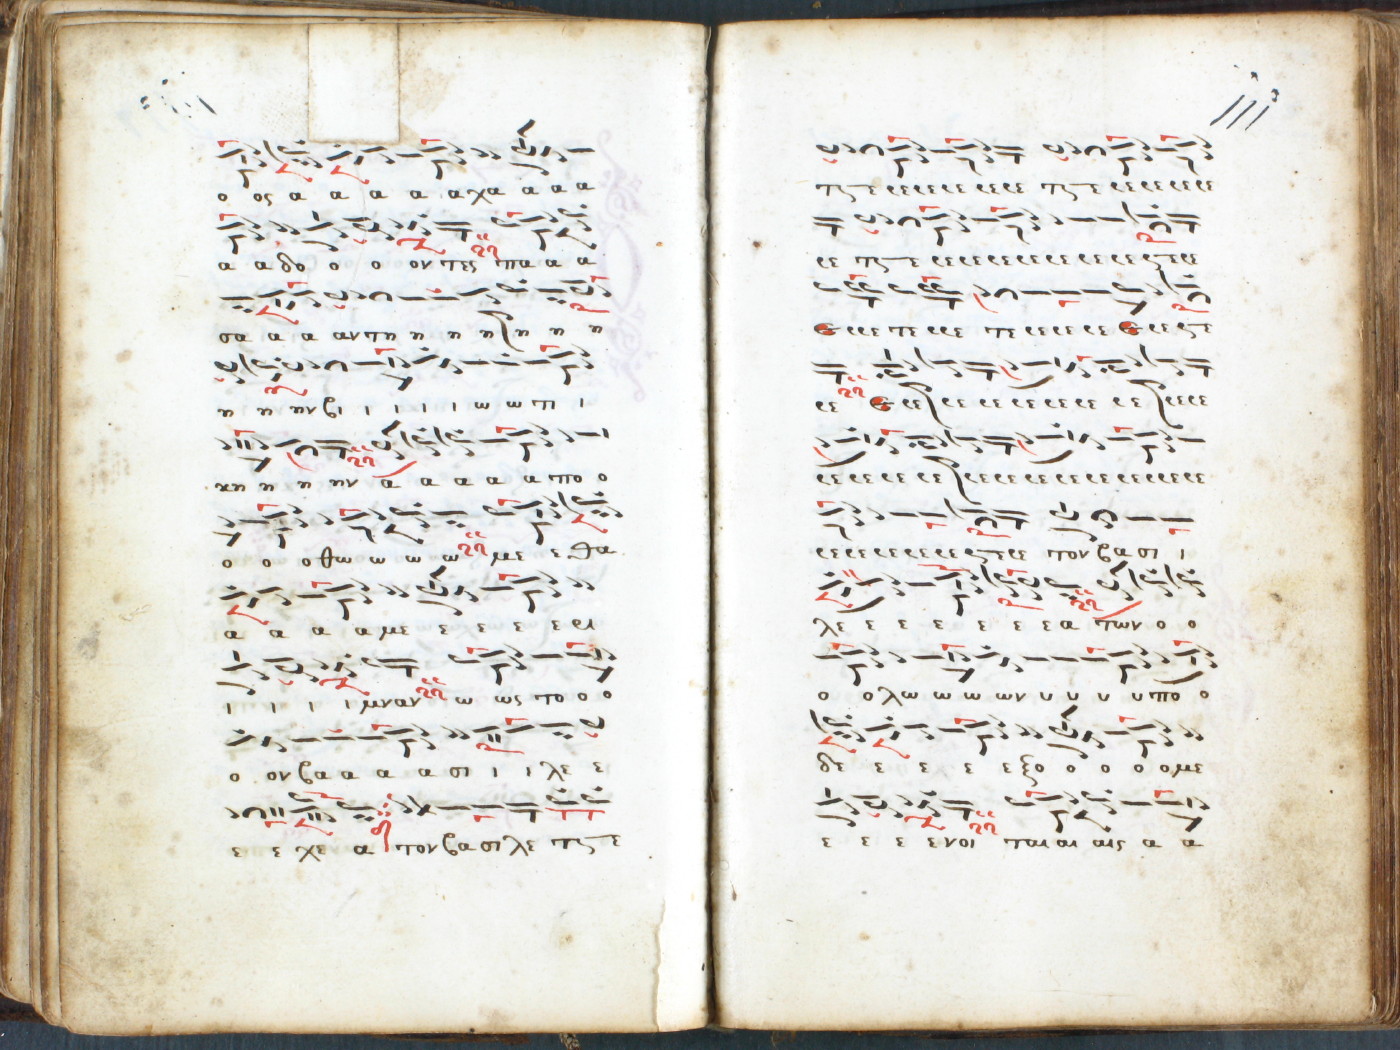 ο ος α α α α α χα α α α
α α δο ο ο ον τες πα α α
σα α α αν τη η η η η η η
η η ην βι ι ι ι ι ω ω τι ι
κη η η η ην α α α α α α πο ο
ο ο ο θω ω ω ω ω με ε θα
α α α α με ε ε ε ε ε αι
ι ι ι ι μναν ω ως το ο ο
ο ον βα α α α α σι ι ι λε ε
ε ε χε α τον βα σι λε τζ ε
τζ ε ε ε ε ε ε ε ε τζ ε ε ε ε ε ε
ε ε τζ ε ε ε ε ε ε ε ε ε ε ε ε ε τζ ε ε
ε ε ε τε ε ε τε ε ε ε ε ε ε ε τζ ε
ε ε ε ε ε ε ε ε ε ε ε ε ε ε ε ε
ε ε ε ε ε ε ε ε ε ε ε ε ε ε ε ε ε ε ε
ε ε ε ε ε ε ε ε τζ ε ε τον βα σι ι
λε ε ε ε ε ε ε ε α των ο ο
ο ο λω ω ω ω ων υ υ υ υ υ πο ο
δε ε ε ε ε ε ξο ο ο ο ο με
ε ε ε ε νοι ται αι αις α α